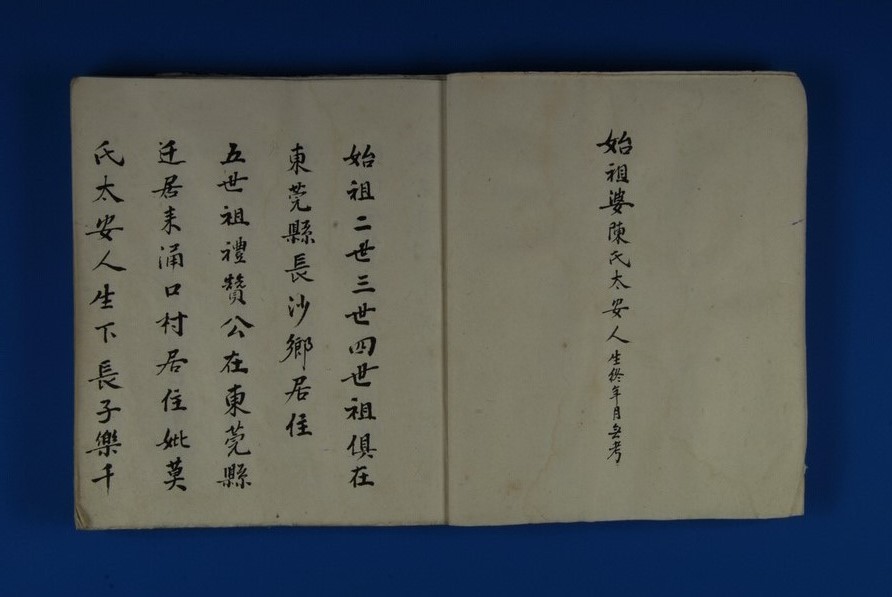 始祖婆陳氏太安人生終年月無考
始祖二世三世四世祖俱在
東莞縣長沙鄉居住
五世祖禮贊公在東莞縣
迁居来涌口村居住妣莫
氏太安人生下長子樂千